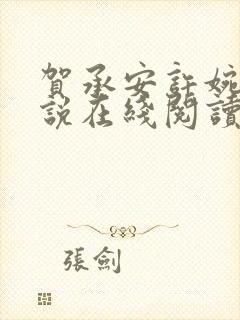 賀承安許婉
說在綫閱讀
張劍